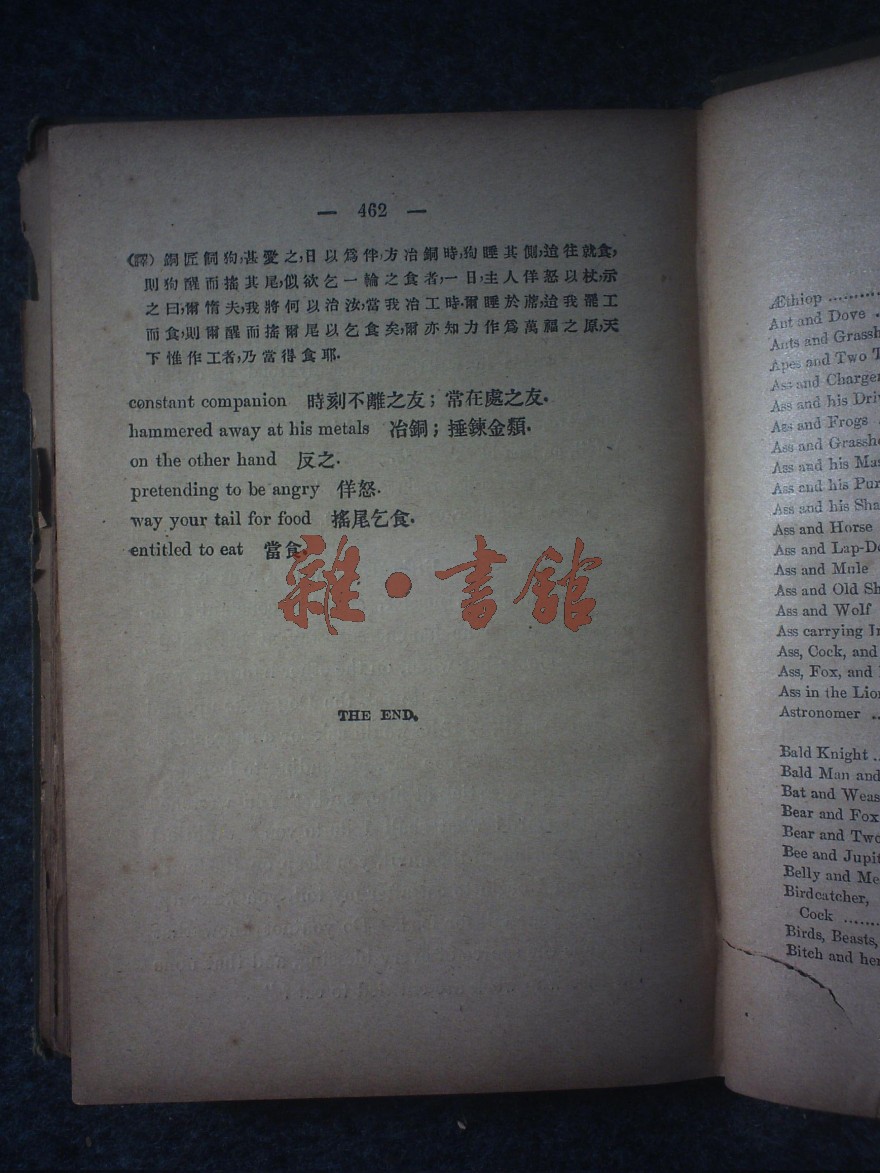 — 462 —
(譯) 銅匠飼狗,甚愛之,日以爲伴,方冶銅時,狗睡其側,迨往就食,
則狗醒而搖其尾,似欲乞一臠之食者,一日,主人佯怒以杖,示
之曰,爾惰夫,我將何以治汝,當我冶工時,爾睡於蓆,迨我罷工
而食,則爾醒而搖爾尾以乞食矣,爾亦知力作爲萬福之原,天
下惟作工者,乃當得食耶.
constant companion 時刻不離之友; 常在處之友.
hammered away at his metals 冶銅; 捶鍊金類.
on the other hand 反之.
pretending to be angry 佯怒.
way your tail for food 搖尾乞食.
entitled to eat 當食.
雜·書館
THE END.
Æthiop
Ant and Dove
Ants and Grassh
Apes and Two T
Ass and Charger
Ass and his Driv
Ass and Frogs
Ass and Grassho
Ass and his Mas
Ass and his Pur
Ass and his Sha
Ass and Horse
Ass and Lap-Do
Ass and Mule
Ass and Old Sh
Ass and Wolf
Ass carrying I
Ass, Cock, and
Ass, Fox, and
Ass in the Lion
Astronomer
Bald Knight
Bald Man and
Bat and Weas
Bear and Fox
Bear and Two
Bee and Jupit
Belly and Me
Birdcatcher,
Cock
Birds, Beasts,
Bitch and her